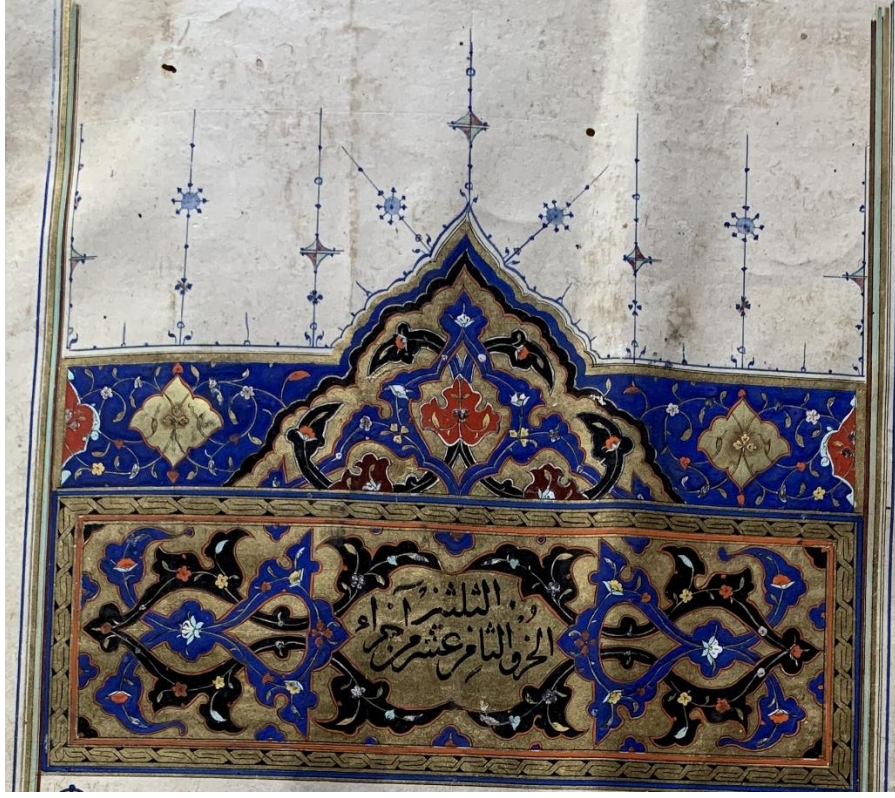 الجزو الثامن عشر من أجزاء
الثلثين